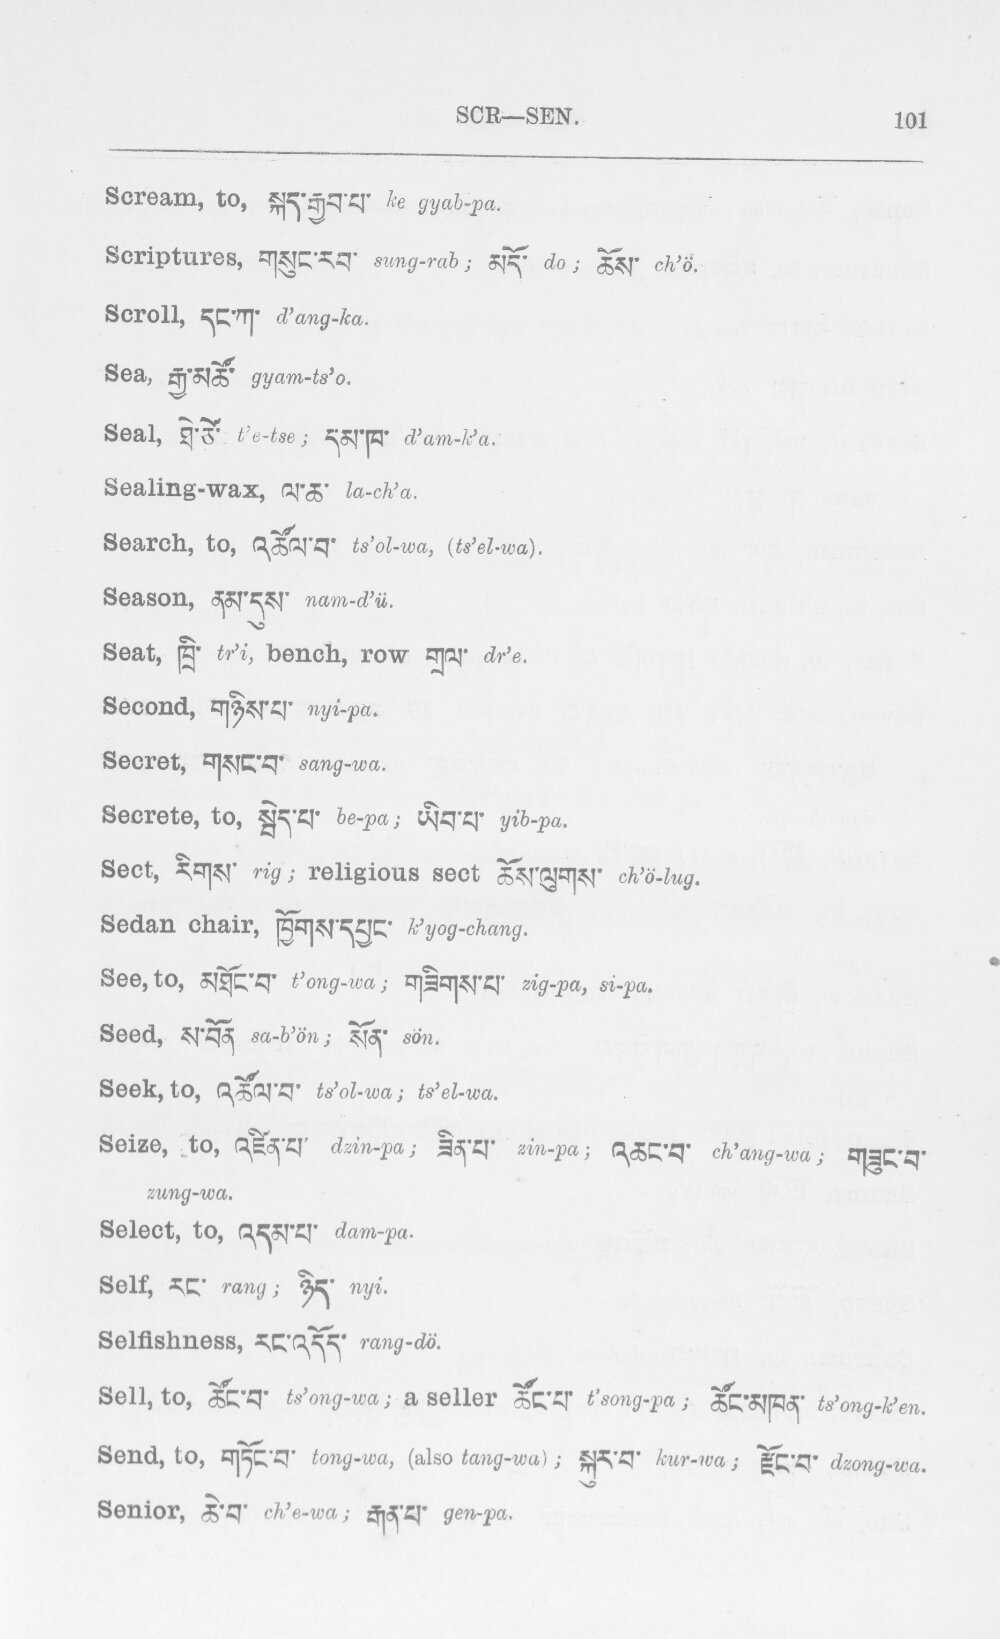 SCR—SEN.
101
Scream, to, སྐད་རྒྱབ་པ་ ke gyab-pa.
Scriptures, གསུང་རབ་ sung-rab; མདོ་ do; ཆོས་ ch’ö.
Scroll, དང་ཀ་ d’ang-ka.
Sea, རྒྱ་མཚོ་ gyam-ts’o.
Seal, ཐེ་ཙེ་ t’e-tse; དམ་ཁ་ d’am-k’a.
Sealing-wax, ལ་ཆ་ la-ch’a.
Search, to, འཚོལ་བ་ ts’ol-wa, (ts’el-wa).
Season, ནམ་དུས་ nam-d’ü.
Seat, ཁྲི་ tr’i, bench, row གྲལ་ dr’e.
Second, གཉིས་པ་ nyi-pa.
Secret, གསང་བ་ sang-wa.
Secrete, to, སྦེད་པ་ be-pa; ཡིབ་པ་ yib-pa.
Sect, རིགས་ rig; religious sect ཆོས་ལུགས་ ch’ö-lug.
Sedan chair, ཁྱོགས་དཔྱང་ k’yog-chang.
See, to, མཐོང་བ་ t’ong-wa; གཟིགས་པ་ zig-pa, si-pa.
Seed, ས་བོན sa-b’ön; སོན་ sön.
Seek, to, འཚོལ་བ་ ts’ol-wa; ts’el-wa.
Seize, to, འཛིན་པ་ dzin-pa; ཟིན་པ་ zin-pa; འཆང་བ་ ch’ang-wa; གཟུང་བ་
zung-wa.
Select, to, འདམ་པ་ dam-pa.
Self, རང་ rang; ཉིད་ nyi.
Selfishness, རང་འདོད་ rang-dö.
Sell, to, ཚོང་བ་ ts’ong-wa; a seller ཚོང་པ་ t’song-pa; ཚོང་མཁན་ ts’ong-k’en.
Send, to, གཏོང་བ་ tong-wa, (also tang-wa); སྐུར་བ་ kur-wa; རྫོང་བ་ dzong-wa.
Senior, ཆེ་བ་ ch’e-wa; རྒན་པ་ gen-pa.